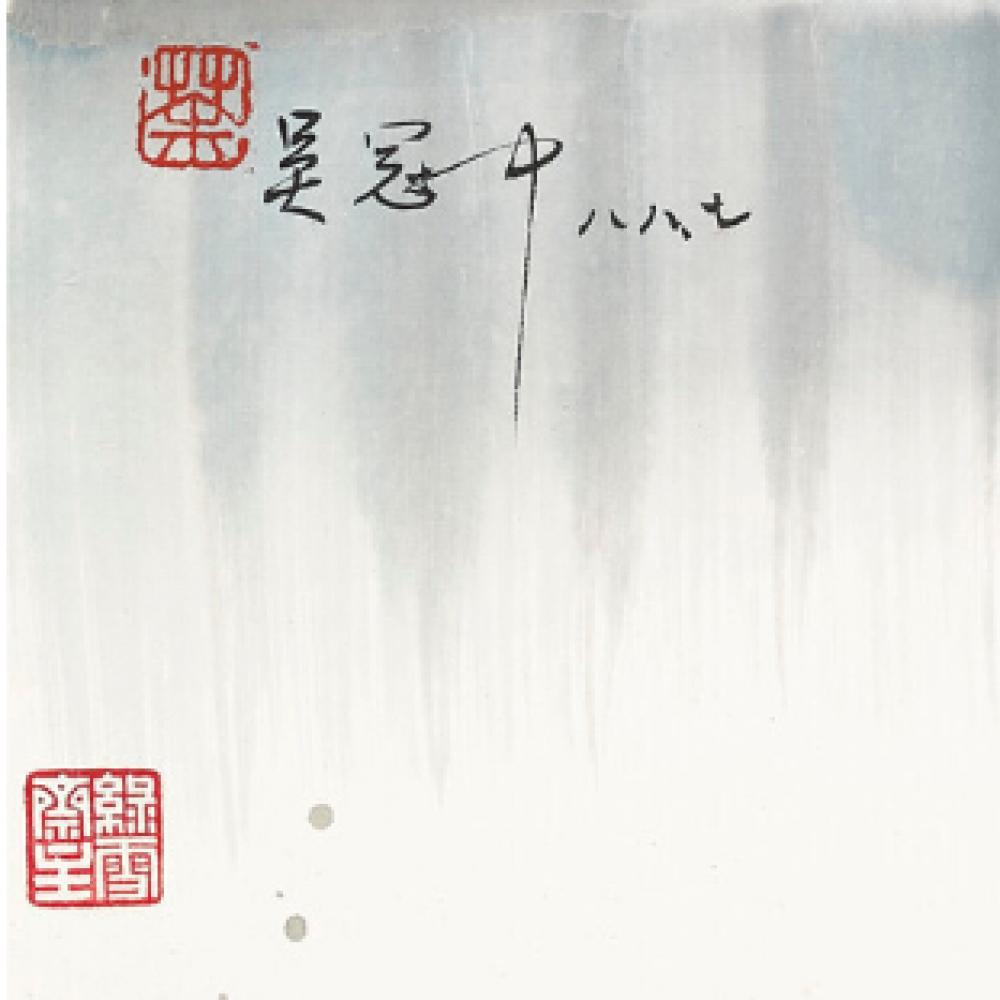 荼
吴冠中 八八、七
綠雪齋主